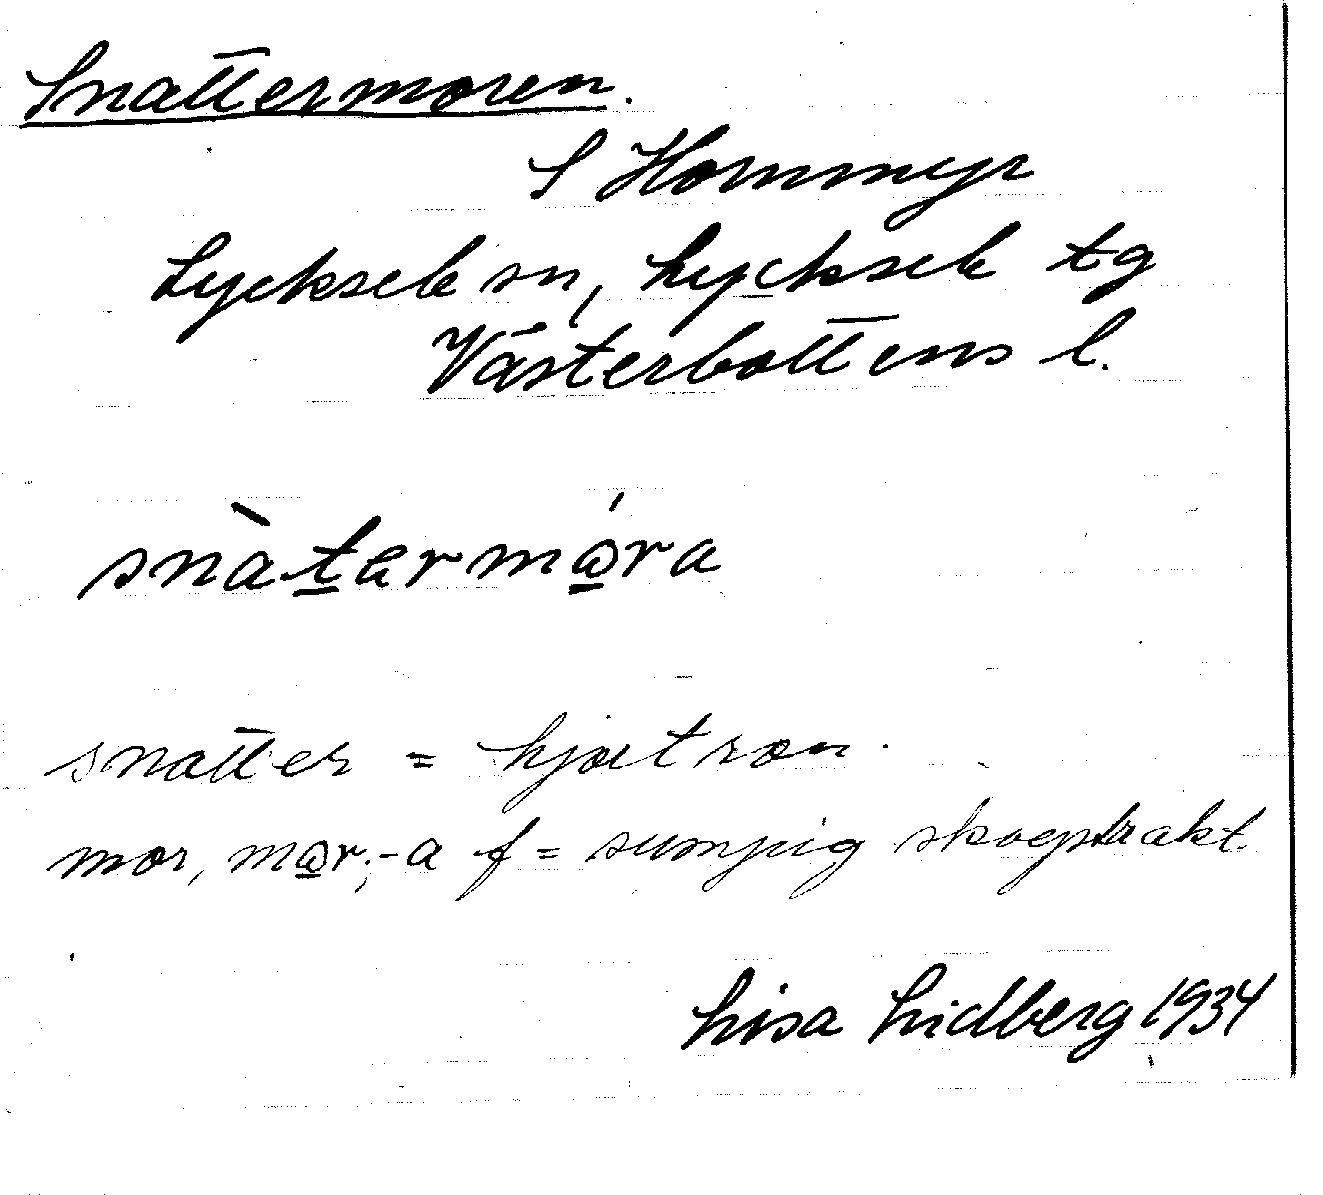 Snattermoren.
S Hornmyr
Lycksele sn, Lycksele tg
Västerbottens l.
snàtermǫ̲́ra
snatter = hjortron.
mor, mǫ̲r; -a f = sumpig skogstrakt
Lisa Lidberg 1934